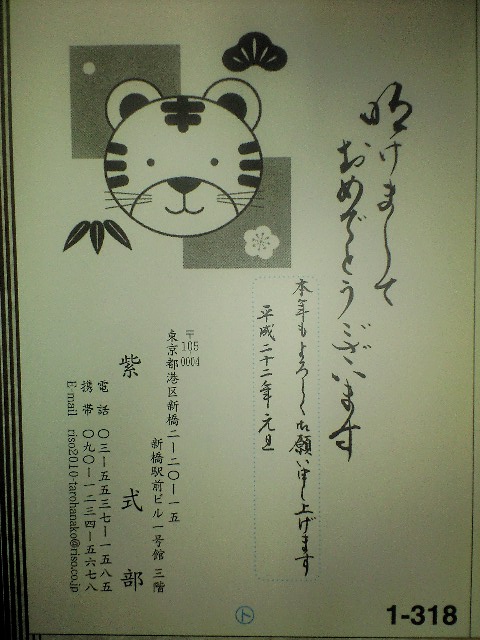 明けまして
おめでとうございます
本年もよろしく御願い申し上げます
平成二十二年 元旦
〒105
0004
東京都港区新橋二－二〇－一五
新橋駅前ビル一号館 三階
紫式部
電話 〇三－五五三七－一五八五
携帯 〇九〇－一二三四－五六七八
E-mail riso2010-tarohanako@riso.co.jp
ト
1-318